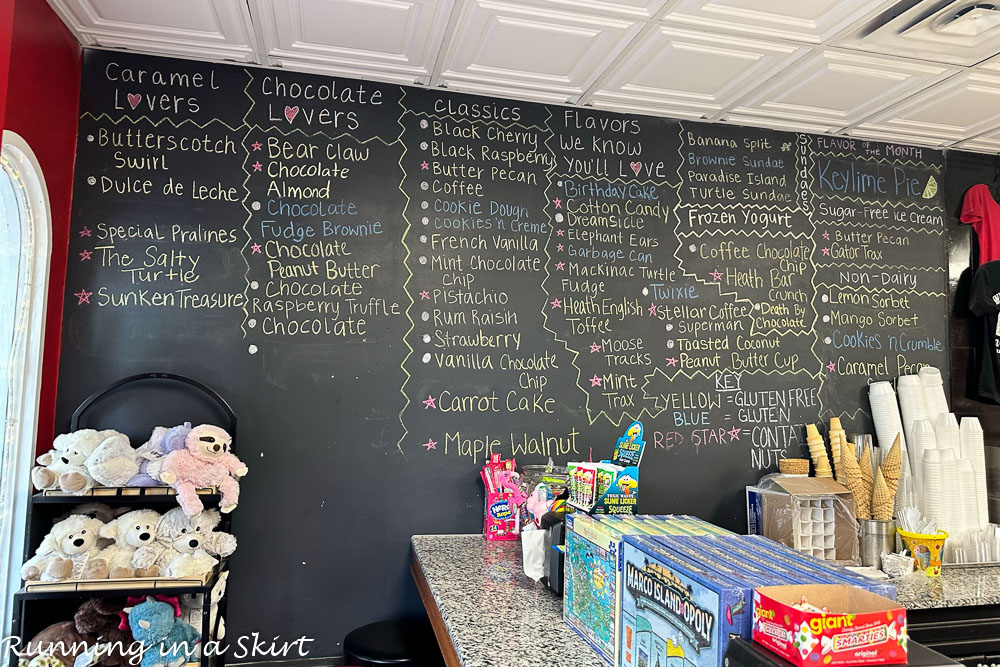 Caramel
Lovers
Butterscotch
Swirl
Dulce de Leche
Special Pralines
The Salty
Turtle
Sunken Treasure
Chocolate
Lovers
Bear Claw
Chocolate
Almond
Chocolate
Fudge Brownie
Chocolate
Peanut Butter
Chocolate
Raspberry Truffle
Chocolate
Classics
Black Cherry
Black Raspberry
Butter Pecan
Coffee
Cookie Dough
Cookies 'n Creme
French Vanilla
Mint Chocolate
Chip
Pistachio
Rum Raisin
Strawberry
Vanilla Chocolate
Chip
Carrot Cake
Maple Walnut
Flavors
We Know
You'll Love
Birthday Cake
Cotton Candy
Dreamsicle
Elephant Ears
Garbage Can
Mackinac Turtle
Fudge
Heath English
Toffee
Moose
Tracks
Mint
Trax
Twixie
Stellar Coffee
Superman
Toasted Coconut
Peanut Butter Cup
Banana Split
Brownie Sundae
Paradise Island
Turtle Sundae
Sundaes
Frozen Yogurt
Coffee Chocolate
Chip
Heath Bar
Crunch
Death By
Chocolate
KEY
YELLOW = GLUTEN FREE
BLUE = GLUTEN
RED STAR =
NUTS
FLAVOR OF THE MONTH
Keylime Pie
Sugar-Free Ice Cream
Butter Pecan
Gator Trax
Non-Dairy
Lemon Sorbet
Mango Sorbet
Cookies 'n Crumble
Caramel
SLIME LICKER
SQUEEZE
TOXIC WASTE
SLIME LICKER
SQUEEZE
Nerds
MARCO ISLAND-OPOLY
giant
SMARTIES
original
giant
SMARTIES
original
Running in a Skirt